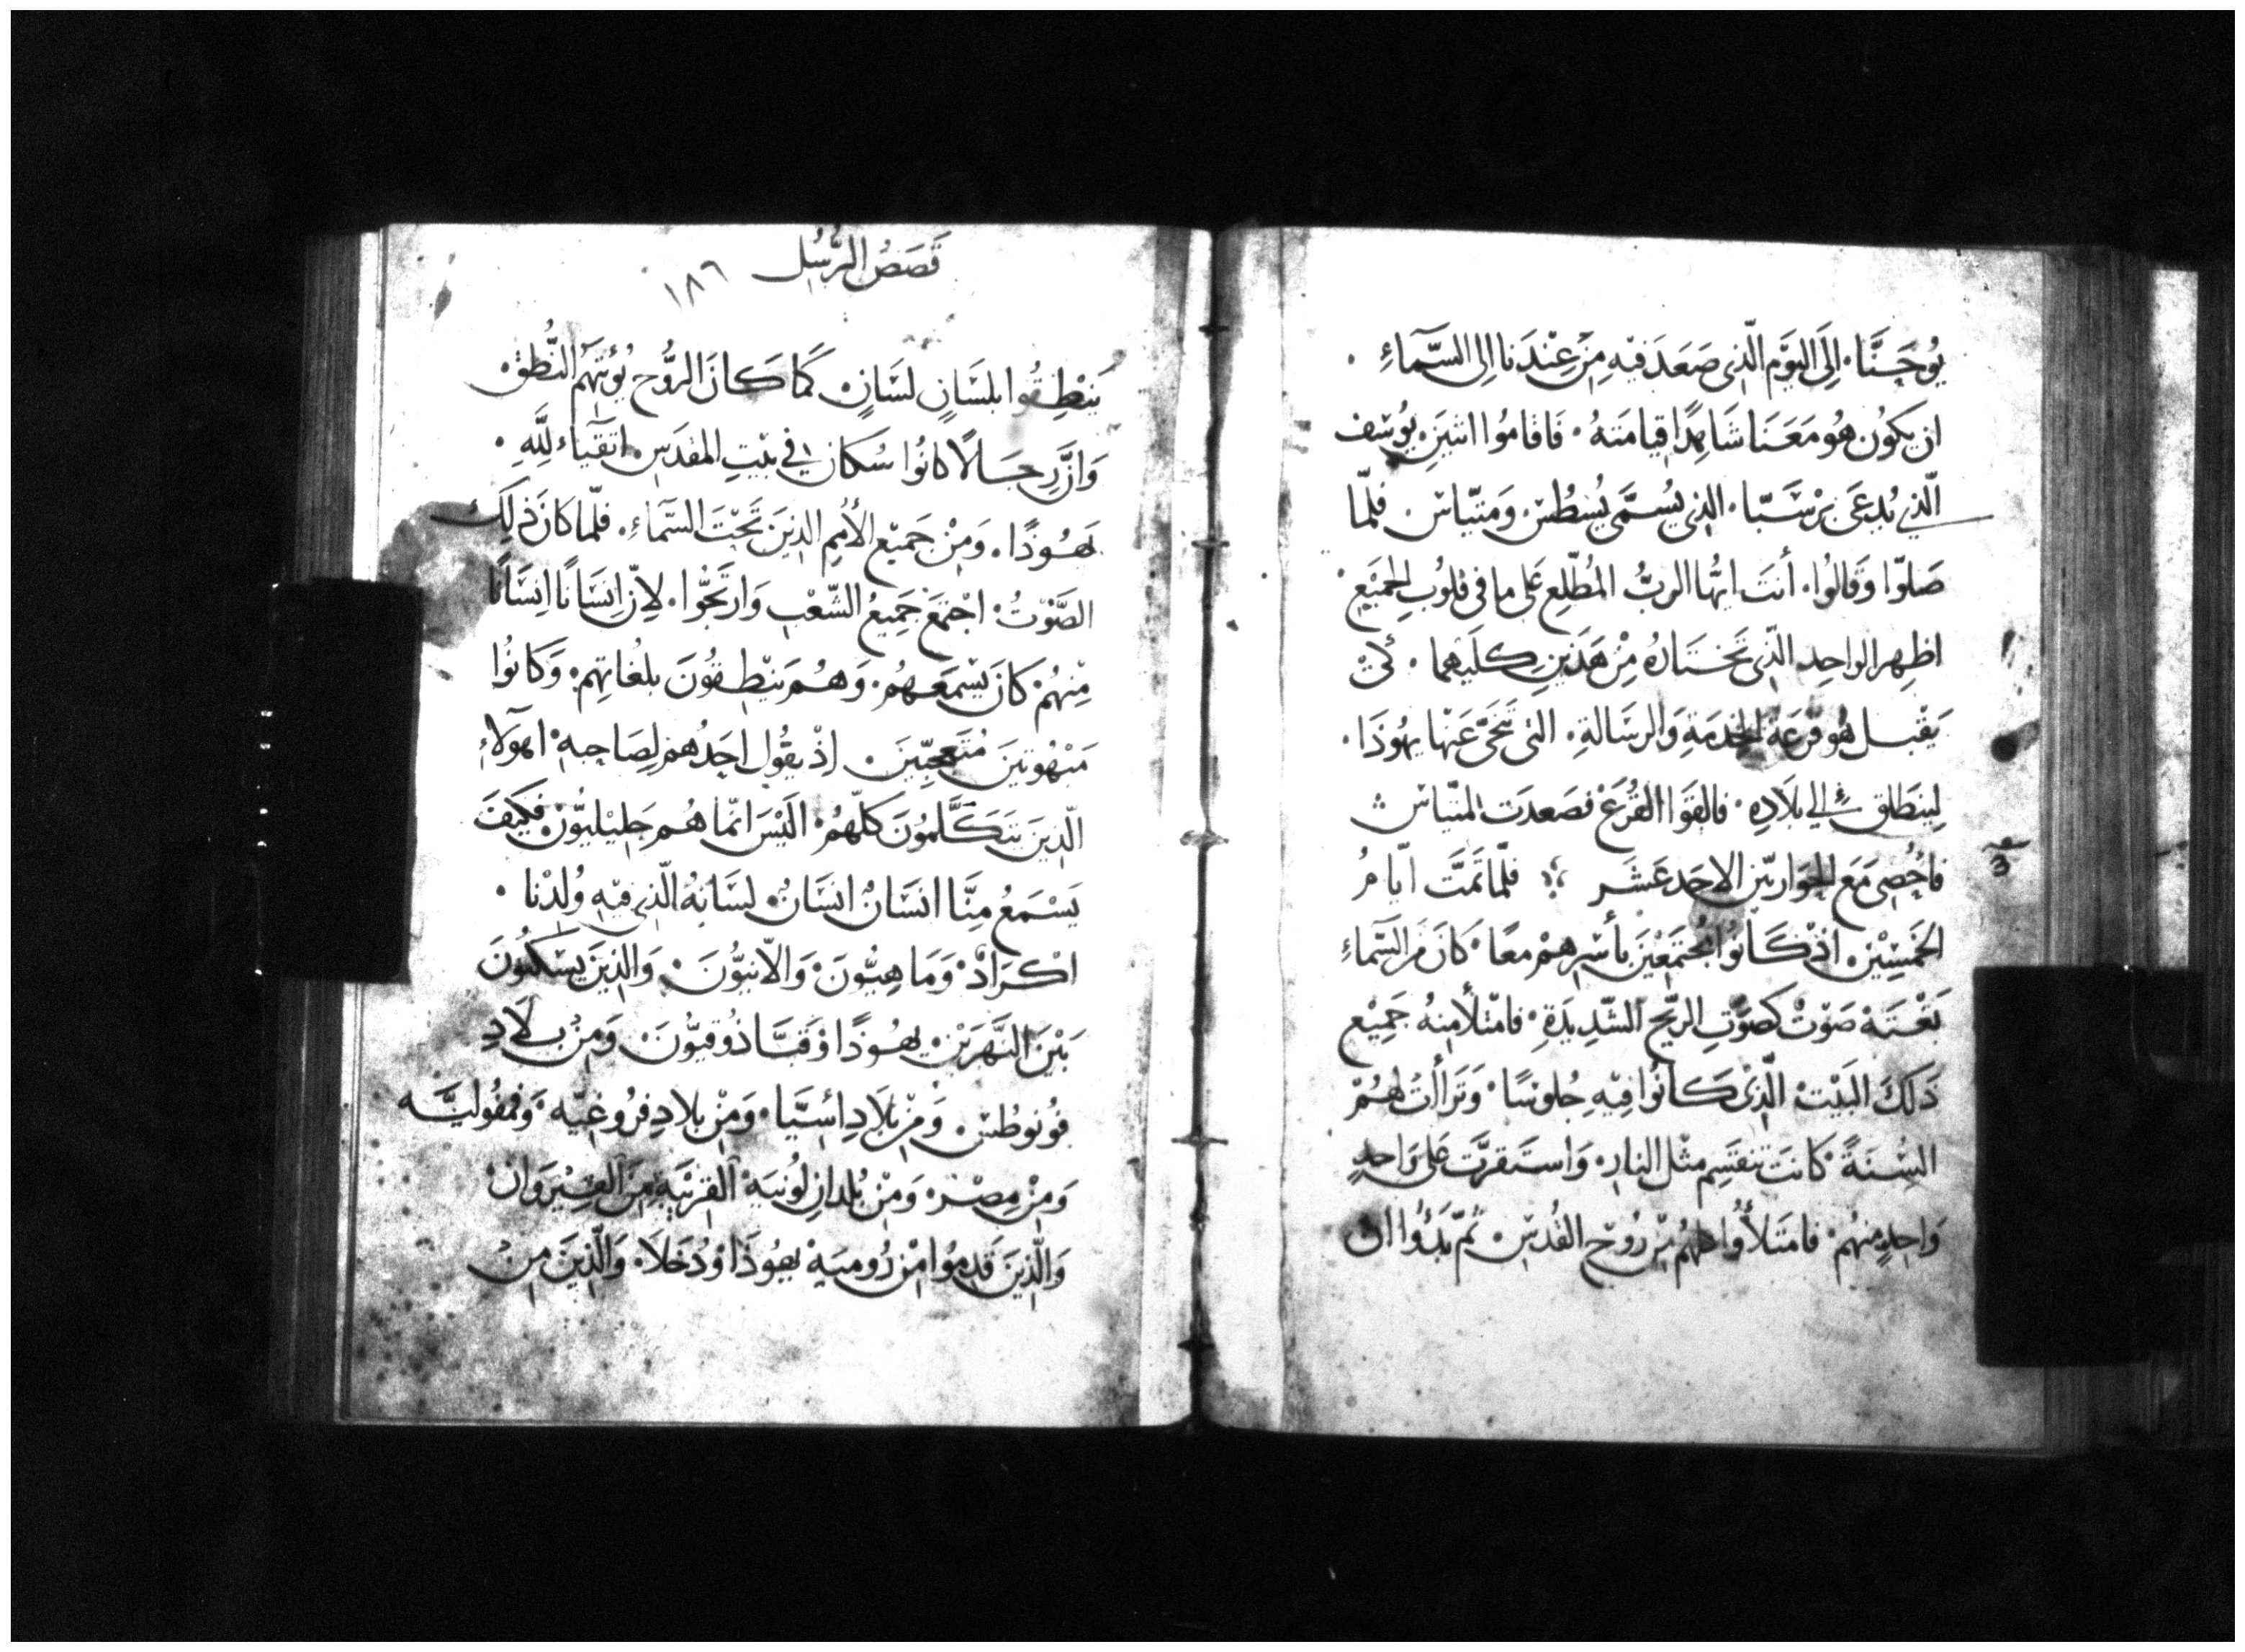 يُوحَنَّا. اِلَى اليَوْم الّذِى صَعَدَ فِيْهِ مِنْ عِنْدَنا اِلى السَّمآءِ.
ان يكوُن هُو مَعَنَا شَاهِدًا قيامَتهُ. فَاقامُوا اثنَيَنِ. يوُسف
الّذي يُدعَى بَرْشَبّا. الذِى يُسَمَّى يُسْطُسْ. وَمتيّاسْ. فلمّا
صَلوّا وَقالوُا. أنتَ ايّها الربُّ المُطّلِع عَلى ما في قلوُب الجميَع.
اظهِر الواحِد الّذِى تَختَارهُ مِنْ هَذَينِ كِلَيهما. لكىْ
يَقْبل هُو قُرعَة الخِدمَةِ وَالرسَالةِ. التى تَنَحَّى عَنْهَا يهُوذَا.
لِينطَلق الي بلَادِهِ. فالقَوا القُرَعْ فصَعدَت لمتيّاسْ
فاحُصِى مَعَ الحوَارييّن الاحَد عَشَر فلمّا تمَّتَ ايّامُ
الخمسِيْن. اذْ كَانوُا مُجتمَعْيَن بأسْرِهمْ معًا. كانَ مَن السَّماءِ
بَغْتَةْ صَوْتْ كَصَوْتِ الريّح الشّدِيدَةِ. فامْتلأ مِنهُ جَمِيْع
ذَلكَ البَيْتْ الّذِىْ كَانوُا فِيْهِ جُلوُسًا. وَتَرَأأتْ لهُمْ
السْنَةً. كانَت تنقسِم مثْل النارِ. وَاستَقرَّت عَلى وَاحدٍ
وَاحِدٍ منِهُمْ. فامتَلأوُا كلهُم مِنْ رُوْح القُدسْ. ثمّ بَدَوُا ان
قَصَصُ الرُّسُل ١٨٦
يَنْطِقُوا بلسَانٍ لسَانٍ. كَمَا كَانَ الروُّح يُؤتيهُم النُّطقْ.
وَانَّ رِجَالًا كانوُا سُكان في بَيْتِ المقدَسِ. اتقَيَاء لِلَّهِ.
يَهُوْذًا. وَمِنْ جَميْع الأمُم الذِينَ تَحْتَ السَّمآءِ. فلمّا كانَ ذَلِكَ
الصَّوْتُ. اجْتمَعَ جَمِيعُ الشّعْبِ وَارتَجُّوا. لاِنّ اِنسَانًا اِنسَانًا
مِنْهُمْ. كانَ يَسْمَعهُم. وَهُم يَنْطِقُونَ بلغُاتهِم. وَكانوُا
مَبْهُوتينَ مُتَعجِّبِيْنَ. اِذ يَقوُل احَدُهمْ لِصَاحِبهِ. اهَولآءِ
الّذِينَ يَتَكَلَّمُونَ كلّهُمْ. الَيْسَ انّما هُم جَلِيْليوُّنْ. فكَيَفَ
يَسْمَعُ مِنَّا انسَانْ انسَانْ. لسَانهُ الّذِى فيْهِ وُلدْنا.
اكْرَادْ. وَمَاهِيُّونَ. وَالاّنيوُّنَ. وَالذِينَ يَسْكنوُنَ
بَيْنَ النَّهَرَيْنِ. يهُوْذًا وَقَبَّاذُوقيوُّنَ. وَمِنْ بِلَادِ
فوُنوطُسْ. وَمِنْ بلَادِ اسْيَّا. وَمِنْ بلادِ فرُوغِيّه. وَفمفُوليَّه
وَمِنْ مِصْرَ. وَمِنْ بُلدانِ لوُنيَه القرْيَبةِ مِنَ القيْرَوَان
وَالّذِينَ قَدِموُا مِنْ رُوميَهْ يهُوْذَا وَدُخَلَا. وَالّذِينَ مِنْ